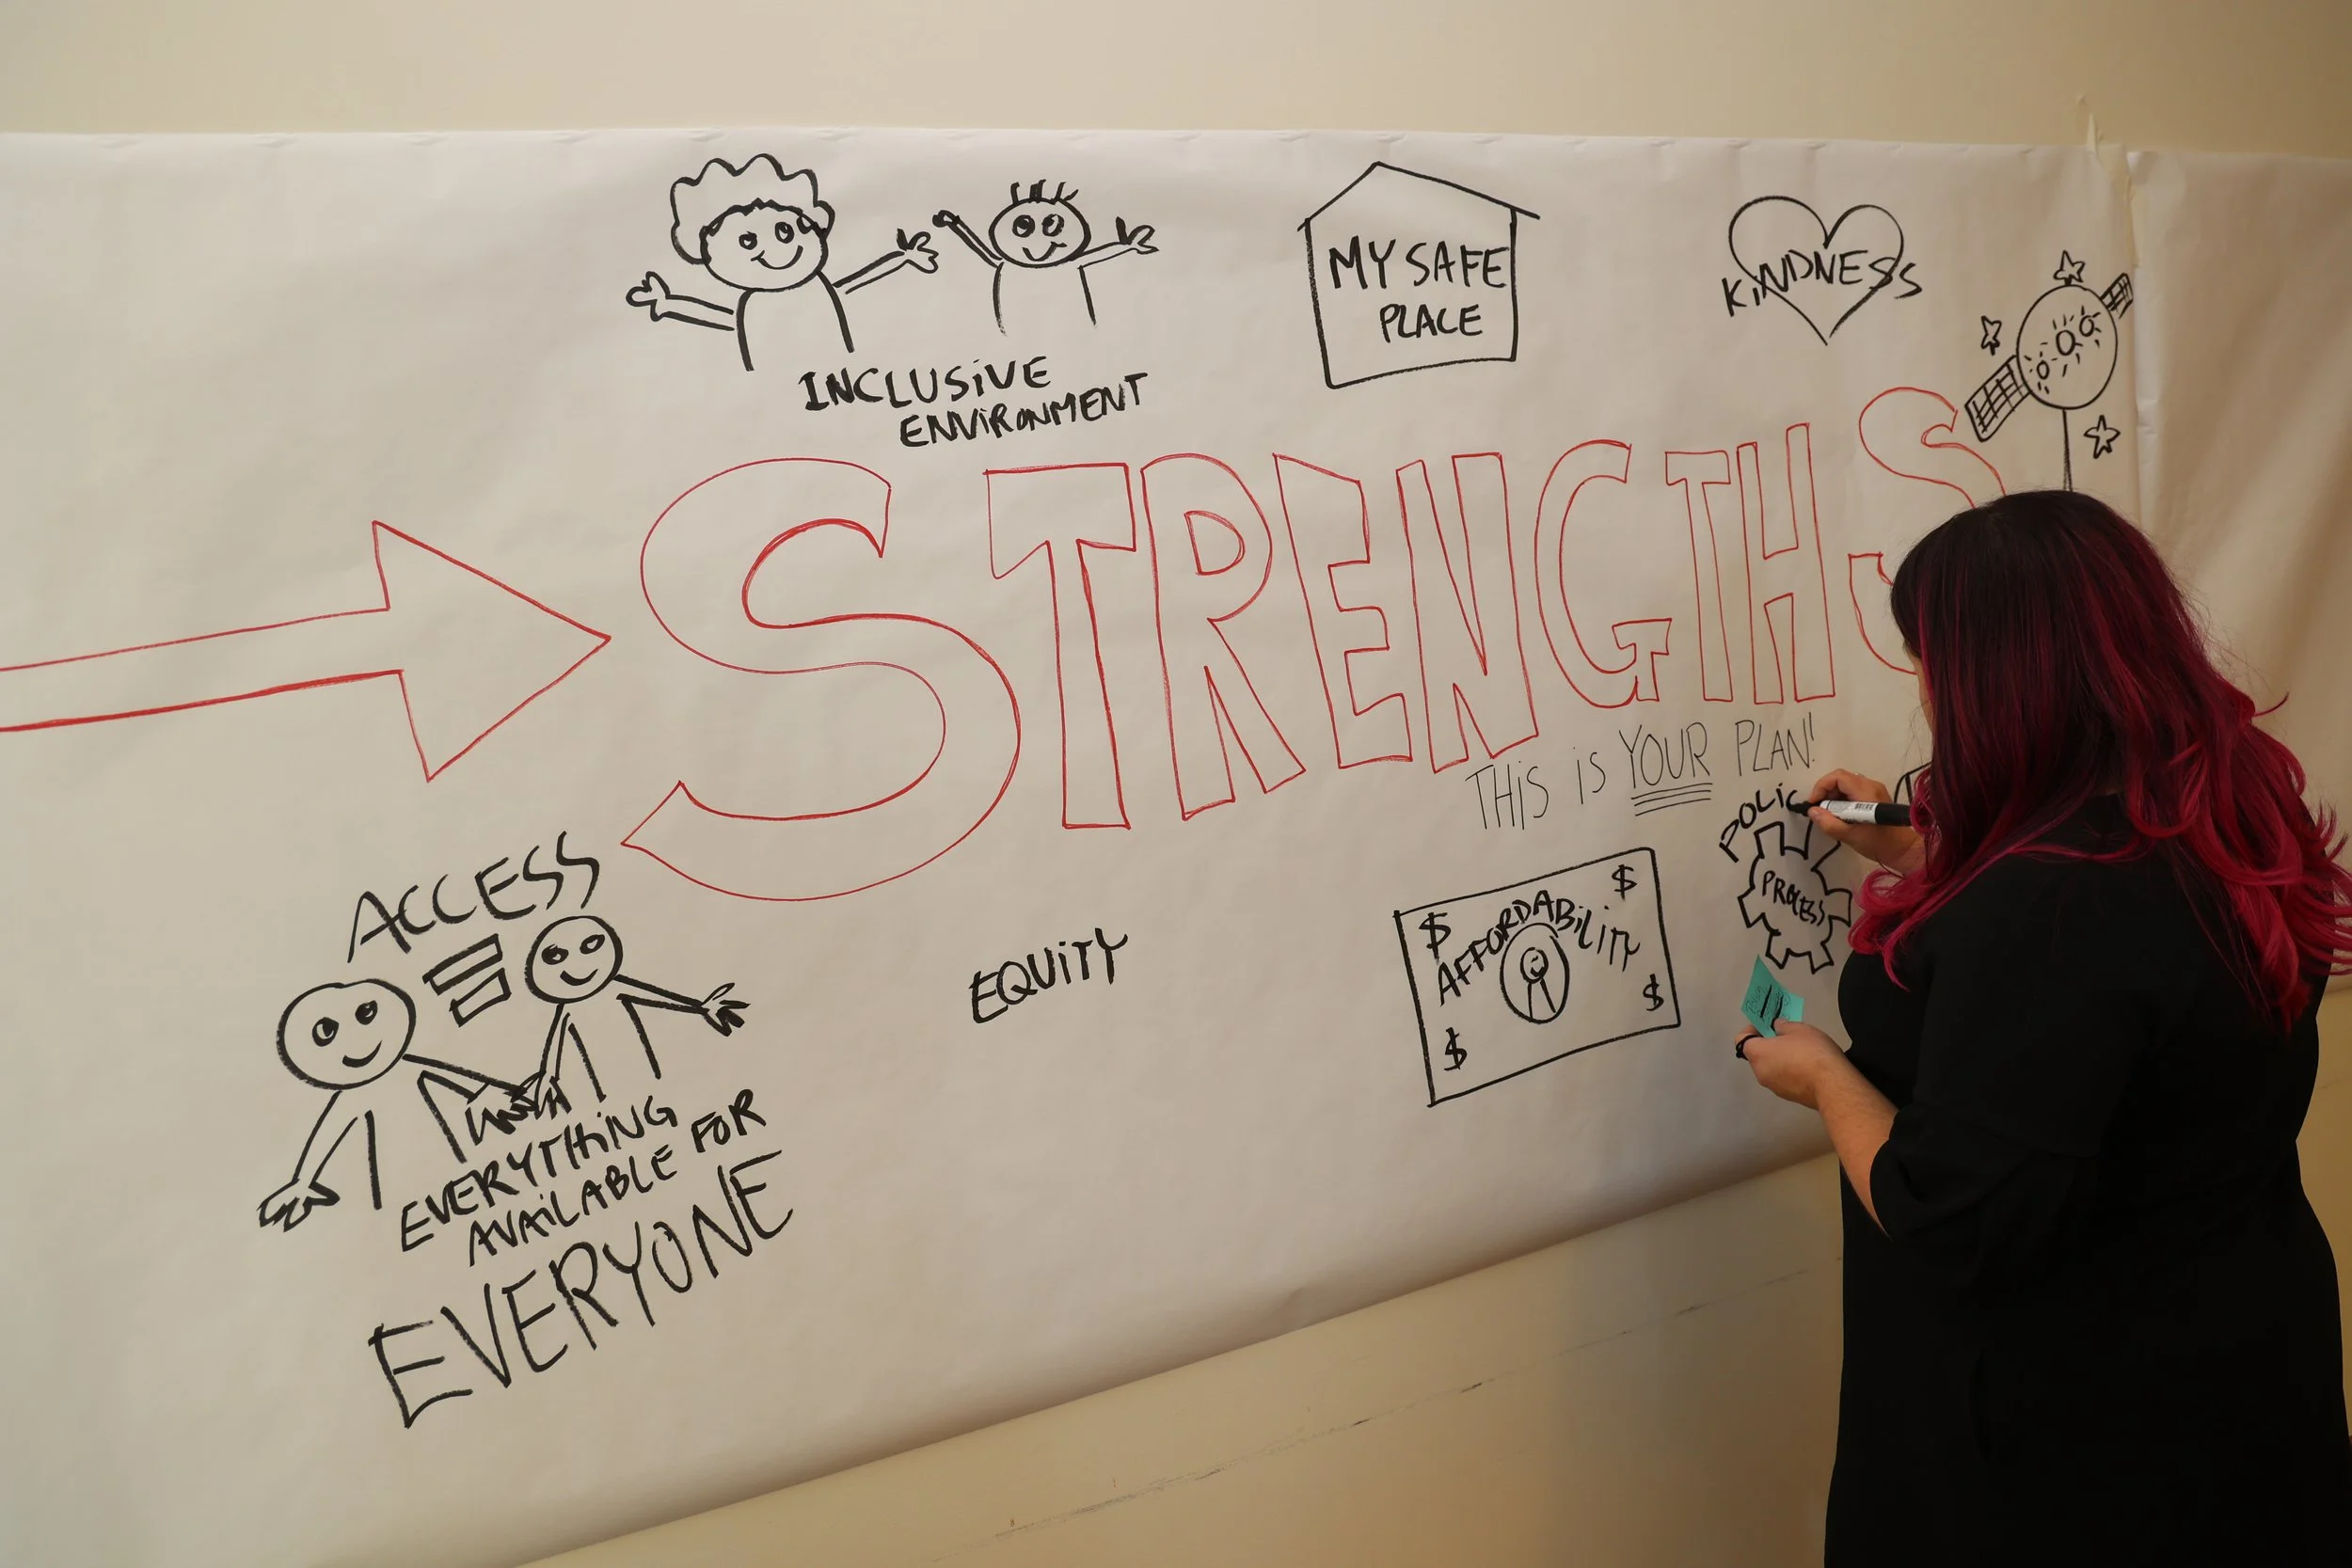 INCLUSIVE
ENVIRONMENT
MY SAFE
PLACE
KINDNESS
STRENGTHS
THIS IS YOUR PLAN!
ACCESS
=
EVERYTHING
AVAILABLE FOR
EVERYONE
EQUITY
$ $
AFFORDABILITY
$ $
POLIC
PROCESS